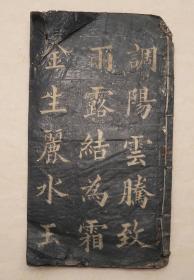 調陽雲騰致
雨露結為霜
金生麗水玉